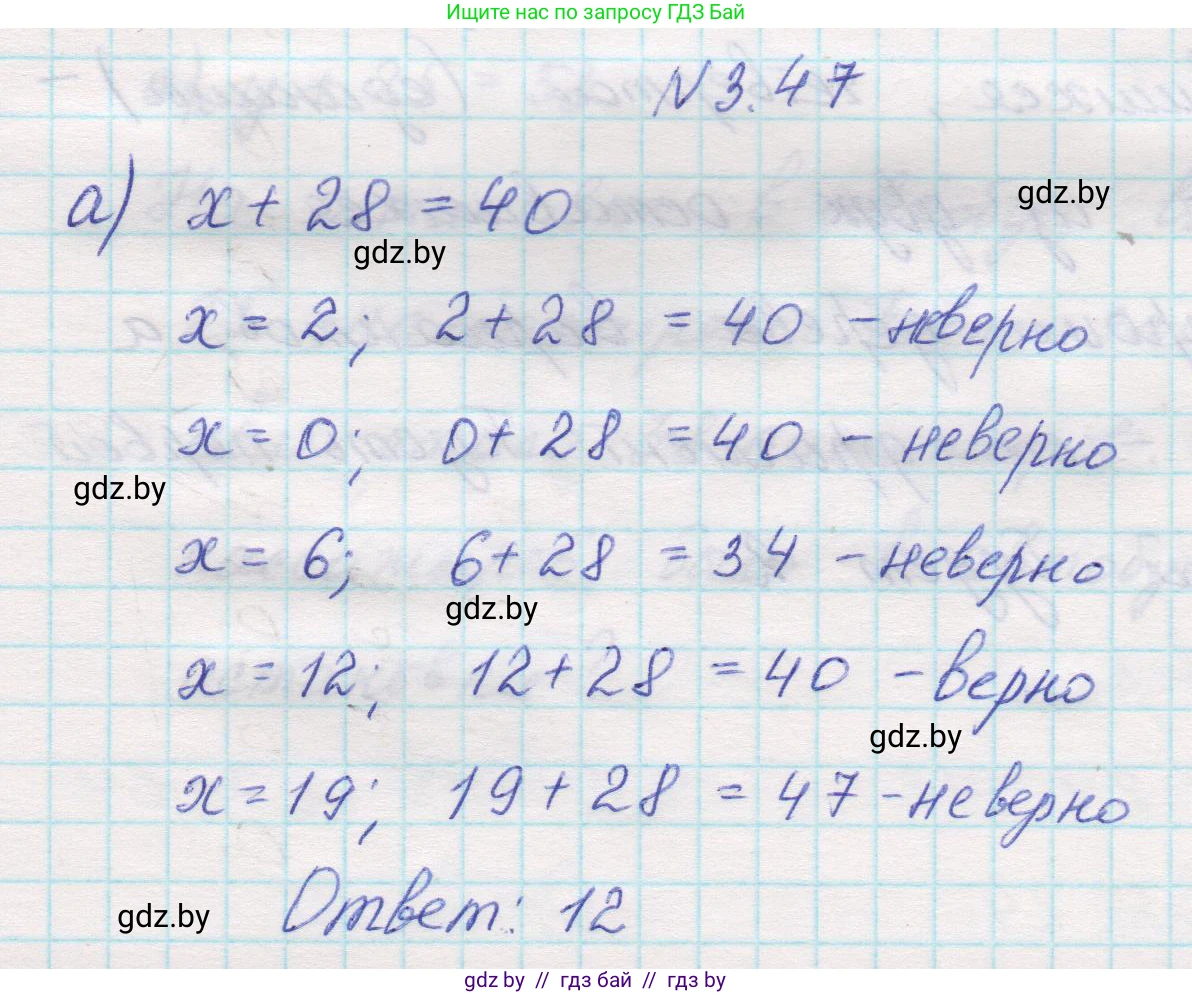 Ищите нас по запросу ГДЗ Бай
N 3.47
а) x + 28 = 40
gdz.by
gdz.by
x = 2; 2 + 28 = 40 - неверно
x = 0; 0 + 28 = 40 - неверно
gdz.by
x = 6; 6 + 28 = 34 - неверно
gdz.by
x = 12; 12 + 28 = 40 - верно
gdz.by
x = 19; 19 + 28 = 47 - неверно
Ответ: 12
gdz.by
gdz by // гдз бай // гдз by